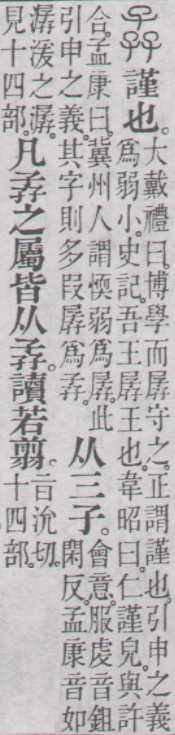 孨謹也。大戴禮曰。博學而孱守之。正謂謹也。引申之義
爲弱小。史記。吾王孱王也。韋昭曰。仁謹皃。與許
合。孟康曰。冀州人謂愞弱爲孱。此
引申之義。其字則多叚孱爲孨。
从三子。會意。服虔音鉏
閑反。孟康音如
潺湲之潺。
見十四部。
凡孨之屬皆从孨。讀若翦。旨沇切。
十四部。